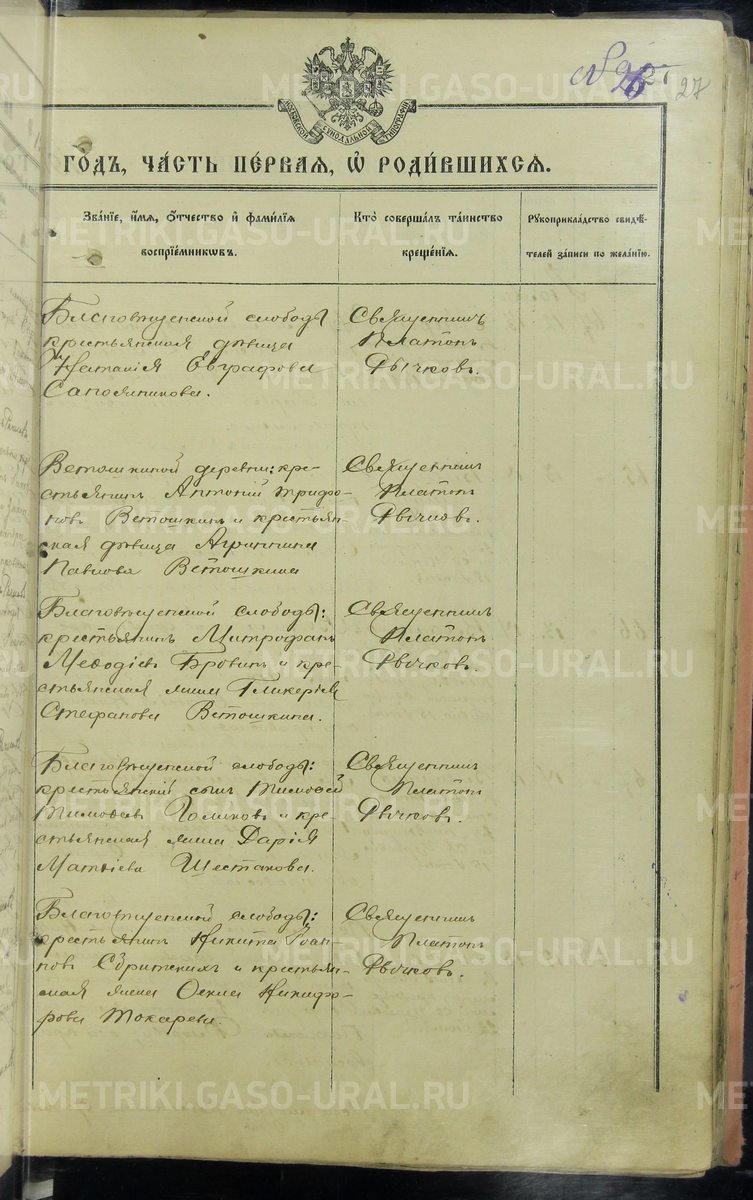 27
МОСКОВСКОЙ СѴНОДАЛЬНОЙ ТИПОГРАФІИ
ГО́ДЪ, ЧА́СТЬ ПЕ́РВАЯ, Ѡ҆ РОДИ́ВШИХСЯ.
Зва́нїе, и҆́мѧ, ѻ҆́тчество и҆ фами́лїѧ
воспрїе́мникѡвъ.
Кто̀ соверша́лъ та́инство
креще́нїѧ.
Рꙋкоприкла́дство свидѣ́-
телей за́писи по жела́нїю.
Благовѣщенской слободы
крестьянская дѣвица
Наталія Евграфова
Сапожникова.
Священникъ
Платонъ
Рычковъ.
Ветошкиной деревни: кре-
стьянинъ Антоній Трифо-
новъ Ветошкинъ и крестьян-
ская дѣвица Агриппина
Павлова Ветошкина
Священникъ
Платонъ
Рычковъ.
Благовѣщенской слободы:
крестьянинъ Митрофанъ
Меѳодіевъ Бровинъ и кре-
стьянская жена Гликерія
Стефанова Ветошкина.
Священникъ
Платонъ
Рычковъ.
Благовѣщенской слободы:
крестьянскій сынъ Тимоѳей
Тимоѳеевъ Голиковъ и кре-
стьянская жена Дарія
Матѳіева Шестакова.
Священникъ
Платонъ
Рычковъ.
Благовѣщенской слободы:
крестьянинъ Никита Іоан-
новъ и крестьян-
ская жена Никифо-
рова Токарева.
Священникъ
Платонъ
Рычковъ.
METRIKI.GASO-URAL.RU